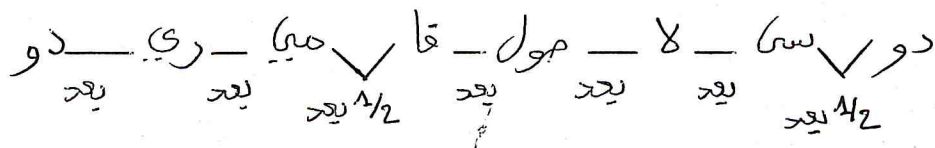 دو ري مي فا صول لا سي دو
بعد بعد 1/2 بعد بعد بعد بعد 1/2 بعد